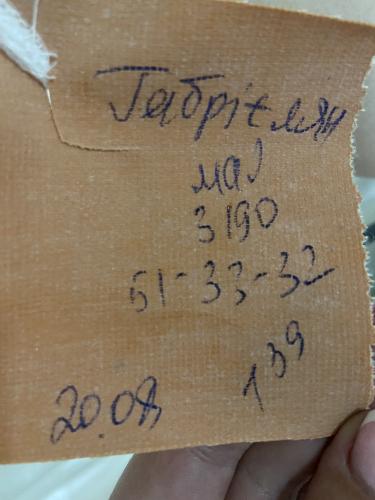 Габрієлян
мал
3190
51-33-32
1³⁹
20.08